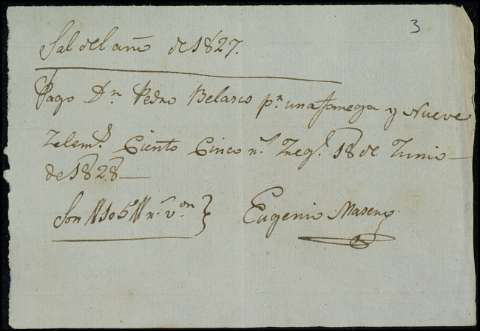 3
Sal del año de 1827.
Pago Dn Pedro Belasco pr una fanega y Nueve
Zelems Ciento Cinco rs 18 de Junio
de 1828
Son 105 rs von
Eugenio